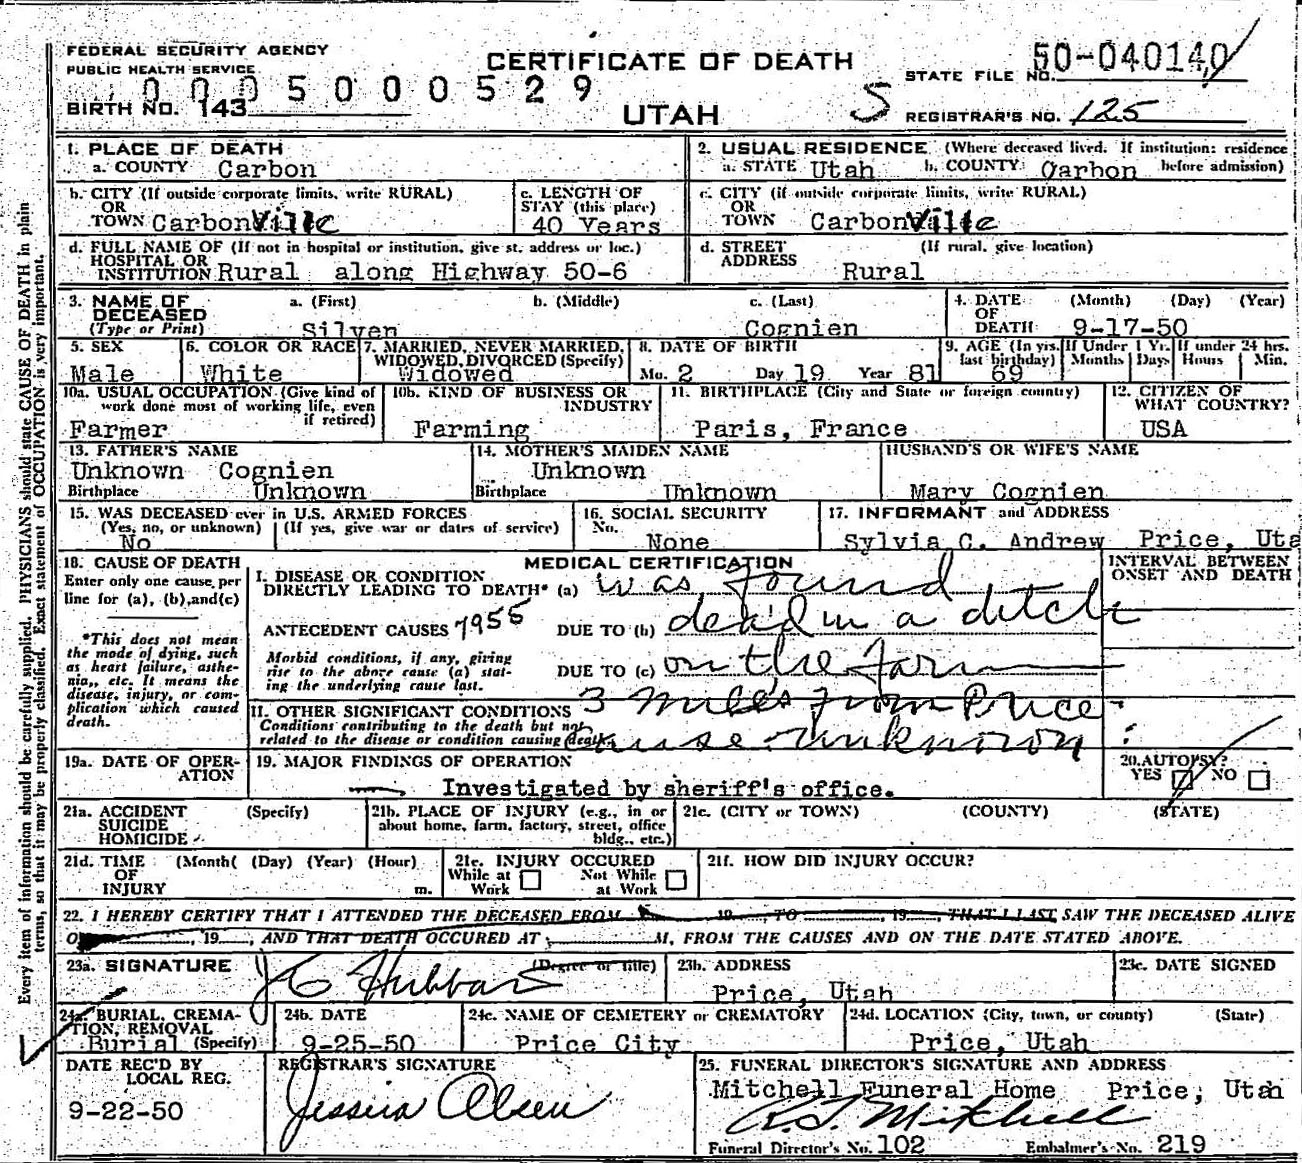 FEDERAL SECURITY AGENCY
PUBLIC HEALTH SERVICE
0005000529
BIRTH NO. 143
CERTIFICATE OF DEATH
UTAH
50-040140
STATE FILE NO.
S
REGISTRAR'S NO. 125
Every item of information should be carefully supplied. PHYSICIANS should state CAUSE OF DEATH in plain
terms, so that it may be properly classified. Exact statement of OCCUPATION is very important.
1. PLACE OF DEATH
a. COUNTY Carbon
2. USUAL RESIDENCE (Where deceased lived. If institution: residence
a. STATE Utah b. COUNTY Carbon before admission)
b. CITY (If outside corporate limits, write RURAL)
OR
TOWN CarbonVille
c. LENGTH OF
STAY (this place)
40 Years
c. CITY (if outside corporate limits, write RURAL)
OR
TOWN CarbonVille
d. FULL NAME OF (If not in hospital or institution, give st. address or loc.)
HOSPITAL OR
INSTITUTION Rural along Highway 50-6
d. STREET (If rural, give location)
ADDRESS
Rural
3. NAME OF a. (First) b. (Middle) c. (Last)
DECEASED
(Type or Print) Silven Cognien
4. DATE (Month) (Day) (Year)
OF
DEATH 9-17-50
5. SEX
Male
6. COLOR OR RACE
White
7. MARRIED, NEVER MARRIED,
WIDOWED, DIVORCED (Specify)
Widowed
8. DATE OF BIRTH
Mo. 2 Day 19 Year 81
9. AGE (In yrs. If Under 1 Yr. If under 24 hrs.
last birthday) Months Days Hours Min.
69
10a. USUAL OCCUPATION (Give kind of
work done most of working life, even
if retired)
Farmer
10b. KIND OF BUSINESS OR
INDUSTRY
Farming
11. BIRTHPLACE (City and State or foreign country)
Paris, France
12. CITIZEN OF
WHAT COUNTRY?
USA
13. FATHER'S NAME
Unknown Cognien
Birthplace Unknown
14. MOTHER'S MAIDEN NAME
Unknown
Birthplace Unknown
HUSBAND'S OR WIFE'S NAME
Mary Cognien
15. WAS DECEASED ever in U.S. ARMED FORCES
(Yes, no, or unknown) (If yes, give war or dates of service)
No
16. SOCIAL SECURITY
No.
None
17. INFORMANT and ADDRESS
Sylvia C. Andrew Price, Uta
18. CAUSE OF DEATH
Enter only one cause per
line for (a), (b), and (c)
*This does not mean
the mode of dying, such
as heart failure, asthe-
nia, etc. It means the
disease, injury, or com-
plication which caused
death.
MEDICAL CERTIFICATION
I. DISEASE OR CONDITION
DIRECTLY LEADING TO DEATH* (a) was found
ANTECEDENT CAUSES 7955 DUE TO (b) dead in a ditch
Morbid conditions, if any, giving
rise to the above cause (a) stat-
ing the underlying cause last.
DUE TO (c) on the farm
II. OTHER SIGNIFICANT CONDITIONS 3 miles from Price
Conditions contributing to the death but not
related to the disease or condition causing death. Cause unknown
INTERVAL BETWEEN
ONSET AND DEATH
19a. DATE OF OPER-
ATION
19. MAJOR FINDINGS OF OPERATION
Investigated by sheriff's office.
20. AUTOPSY?
YES NO
21a. ACCIDENT (Specify)
SUICIDE
HOMICIDE
21b. PLACE OF INJURY (e.g., in or
about home, farm, factory, street, office
bldg., etc.)
21c. (CITY or TOWN) (COUNTY) (STATE)
21d. TIME (Month( (Day) (Year) (Hour)
OF
INJURY m.
21e. INJURY OCCURED
While at Not While
Work at Work
21f. HOW DID INJURY OCCUR?
22. I HEREBY CERTIFY THAT I ATTENDED THE DECEASED FROM 19 , TO , 19 , THAT I LAST SAW THE DECEASED ALIVE
O , 19 , AND THAT DEATH OCCURED AT M, FROM THE CAUSES AND ON THE DATE STATED ABOVE.
23a. SIGNATURE (Degree or title)
Hubbard
23b. ADDRESS
Price, Utah
23c. DATE SIGNED
24a. BURIAL, CREMA-
TION, REMOVAL
Burial (Specify)
24b. DATE
9-25-50
24c. NAME OF CEMETERY or CREMATORY
Price City
24d. LOCATION (City, town, or county) (State)
Price, Utah
DATE REC'D BY
LOCAL REG.
9-22-50
REGISTRAR'S SIGNATURE
Jessica Olsen
25. FUNERAL DIRECTOR'S SIGNATURE AND ADDRESS
Mitchell Funeral Home Price, Utah
Mitchell
Funeral Director's No. 102 Embalmer's No. 219